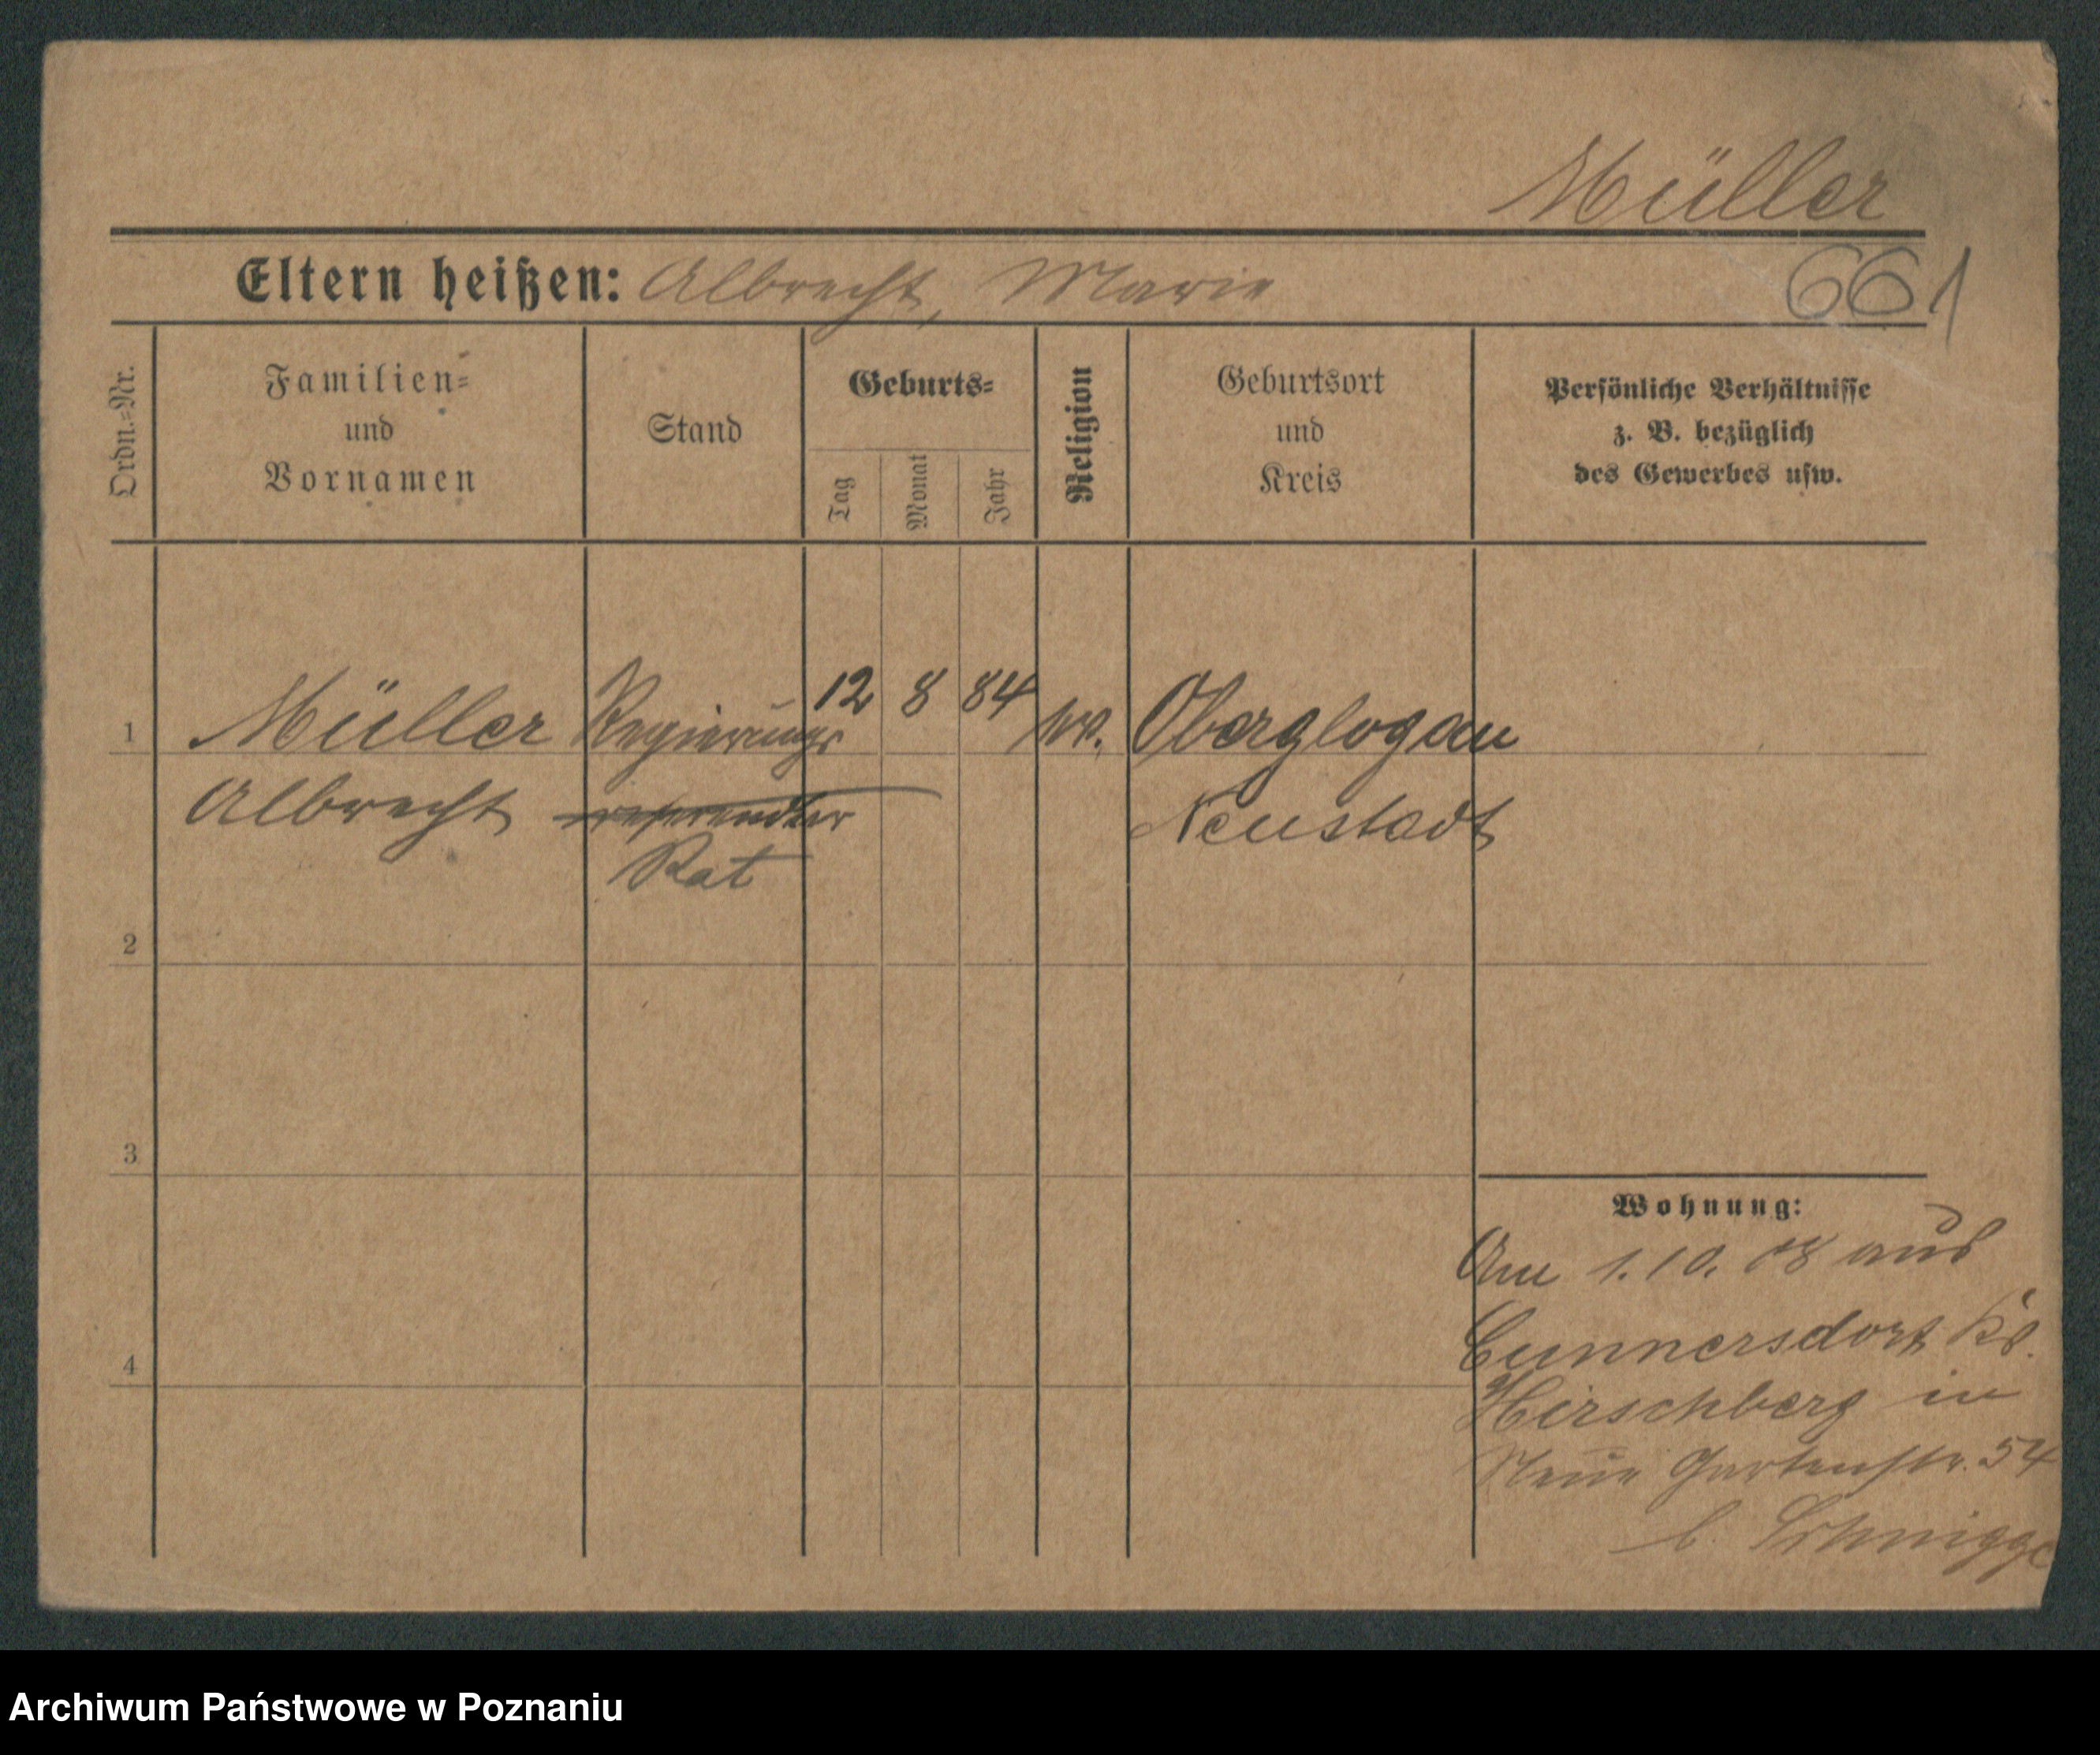 Müller
Eltern heißen: Albrecht, Marie
661
Ordn.=Nr.
Familien=
und
Vornamen
Stand
Geburts=
Tag
Monat
Jahr
Religion
Geburtsort
und
Kreis
Persönliche Verhältnisse
z. B. bezüglich
des Gewerbes usw.
1 Müller Regierungs 12 8 84 ev. Oberglogau
Albrecht referendar Neustadt
Rat
2
3
4
Wohnung:
Am 1. 10. 08 aus
Cunnersdorf Kr.
Hirschberg in
Neue Gartenstr. 54
b.
Archiwum Państwowe w Poznaniu